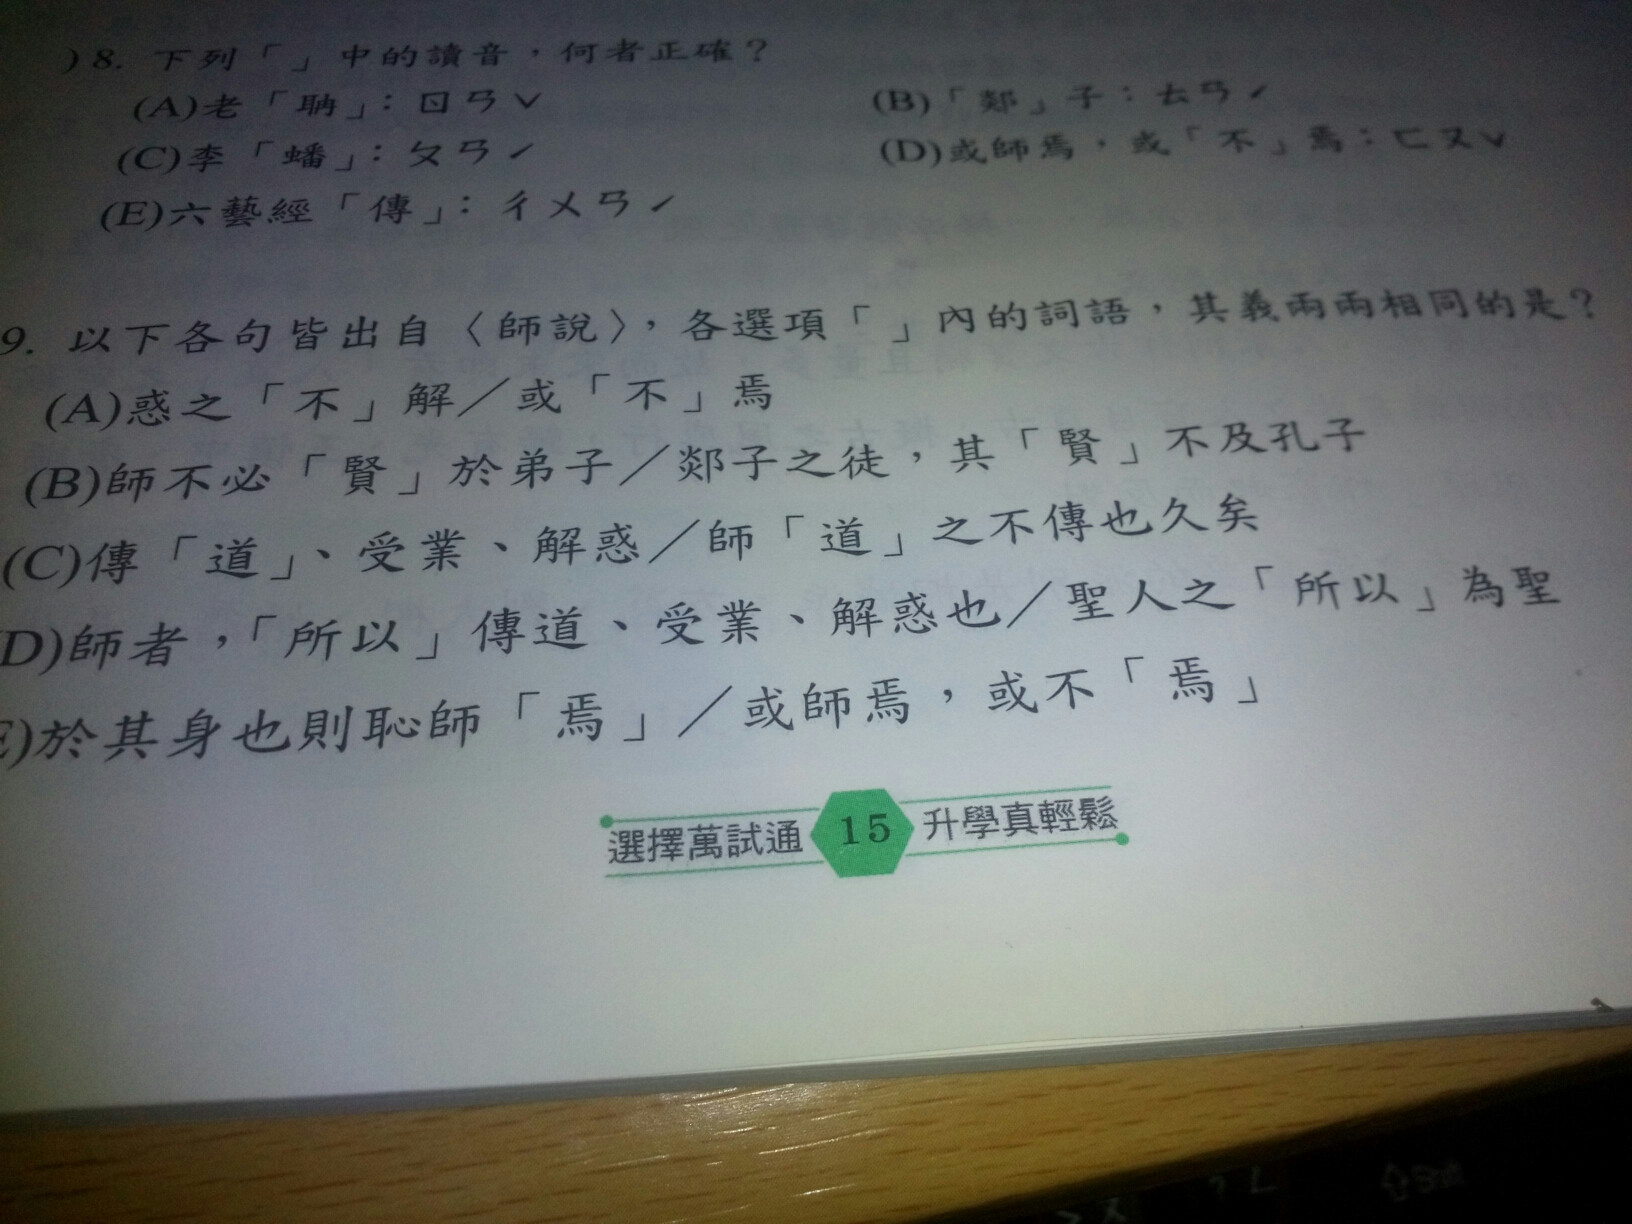 )8. 下列「 」中的讀音,何者正確?
(A)老「聃」:ㄖㄢˇ (B)「郯」子:ㄊㄢˊ
(C)李「蟠」:ㄆㄢˊ (D)或師焉,或「不」焉:ㄈㄡˇ
(E)六藝經「傳」:ㄔㄨㄢˊ
9. 以下各句皆出自〈師說〉,各選項「 」內的詞語,其義兩兩相同的是?
(A)惑之「不」解/或「不」焉
(B)師不必「賢」於弟子/郯子之徒,其「賢」不及孔子
(C)傳「道」、受業、解惑/師「道」之不傳也久矣
D)師者,「所以」傳道、受業、解惑也/聖人之「所以」為聖
E)於其身也則恥師「焉」/或師焉,或不「焉」
選擇萬試通 15 升學真輕鬆